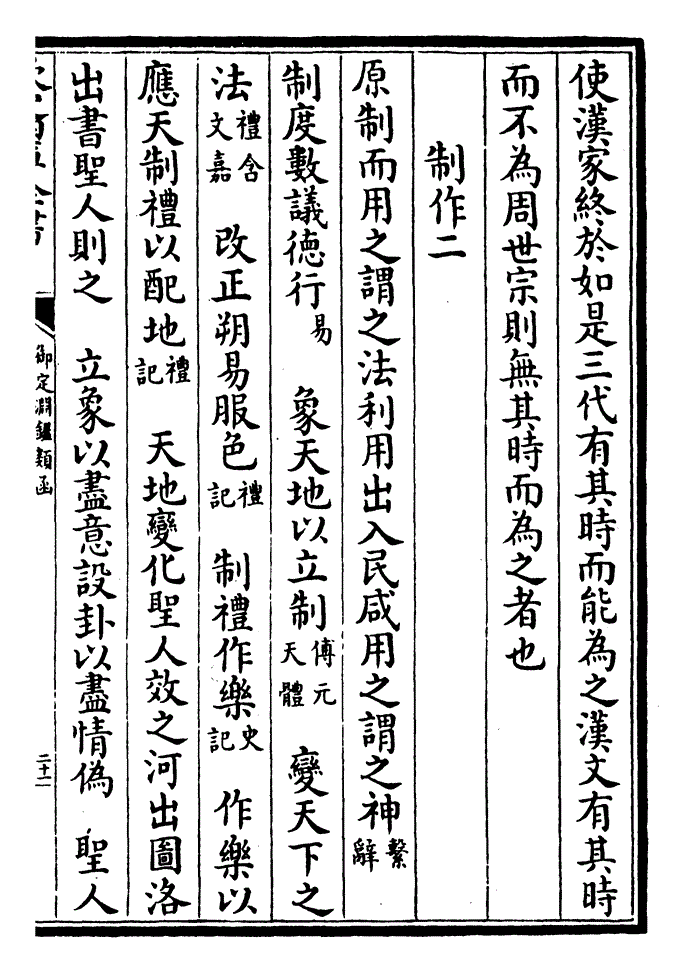 使漢家終於如是三代有其時而能為之漢文有其時
而不為周世宗則無其時而為之者也
制作二
原制而用之謂之法利用出入民咸用之謂之神繫辭
制度數議德行易　象天地以立制傅元天體　變天下之
法禮含文嘉　改正朔易服色禮記　制禮作樂史記　作樂以
應天制禮以配地禮記　天地變化聖人效之河出圖洛
出書聖人則之　立象以盡意設卦以盡情偽　聖人
御定淵鑑類函
二十一